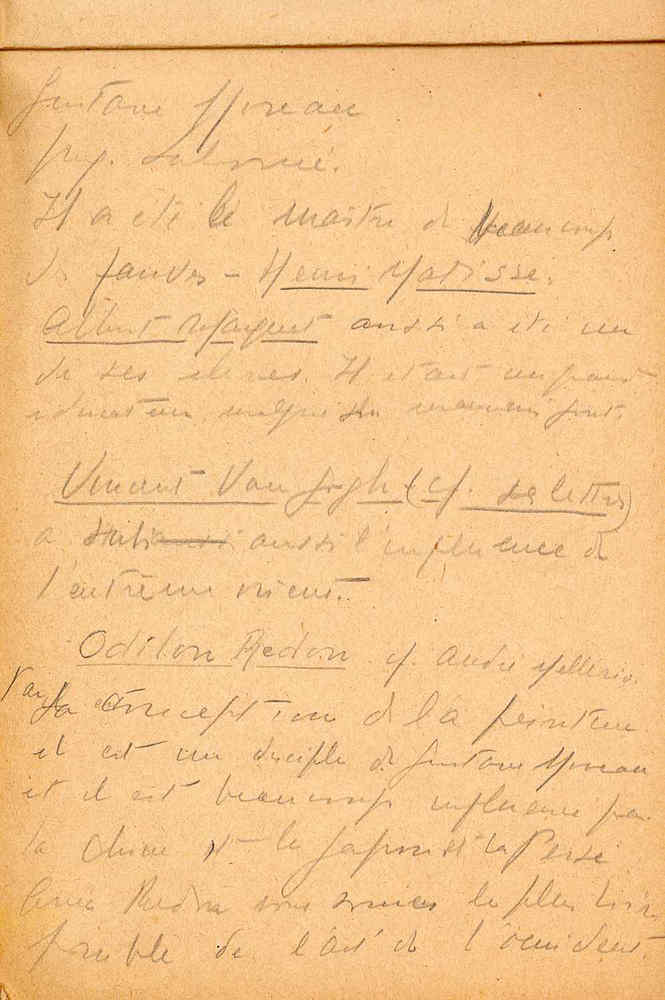 Gustave Moreau
Salomé.
Il a été le maître de beaucoup
de fauves – Henri Matisse.
Albert Marquet aussi a été un
de ses élèves. Il était un grand
éducateur malgré son mauvais goût.
Vincent Van Gogh (cf. ses lettres)
a subi aussi l'influence de
l'extrême orient.
Odilon Redon cf. André Mellerio.
Par sa conception de la peinture
il est un disciple de Gustave Moreau
et il est beaucoup influencé par
la Chine et le Japon et la Perse
Avec Redon nous sommes le plus loin
possible de l'art de l'occident.